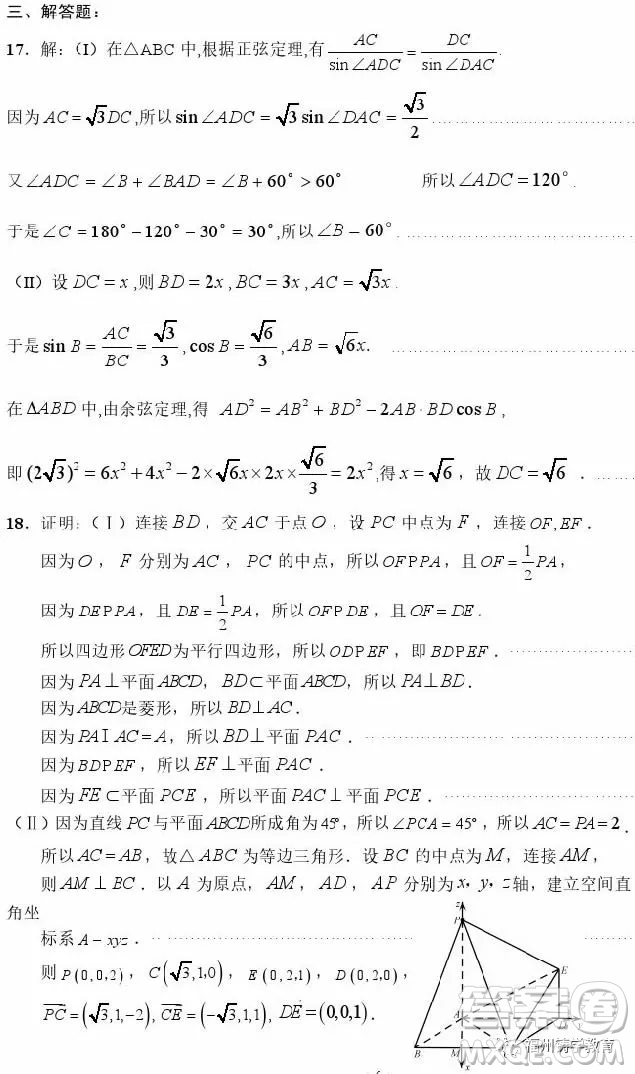 三、解答题:
17. 解: (I) 在△ABC 中,根据正弦定理,有 AC/sin∠ADC = DC/sin∠DAC.
因为 AC = √3DC ,所以 sin∠ADC = √3 sin∠DAC = √3/2
又∠ADC = ∠B + ∠BAD = ∠B + 60° > 60° 所以∠ADC = 120° .
于是∠C = 180° − 120° − 30° = 30° ,所以∠B − 60° .
(II) 设 DC = x ,则 BD = 2x , BC = 3x , AC = √3x .
于是 sin B = AC/BC = √3/3 , cos B = √6/3 , AB = √6x.
在 ΔABD 中,由余弦定理,得 AD² = AB² + BD² − 2AB · BD cos B ,
即 (2√3)² = 6x² + 4x² − 2 × √6x × 2x × √6/3 = 2x² ,得 x = √6 ,故 DC = √6 .
18. 证明: (Ⅰ) 连接 BD , 交 AC 于点 O , 设 PC 中点为 F , 连接 OF, EF .
因为 O , F 分别为 AC , PC 的中点, 所以 OFPPA , 且 OF = 1/2 PA ,
因为 DEPPA , 且 DE = 1/2 PA , 所以 OFPDE , 且 OF = DE .
所以四边形 OFED 为平行四边形, 所以 ODPEF , 即 BDPEF .
因为 PA ⊥ 平面 ABCD , BD ⊂ 平面 ABCD , 所以 PA ⊥ BD .
因为 ABCD 是菱形, 所以 BD ⊥ AC .
因为 PAI AC = A , 所以 BD ⊥ 平面 PAC .
因为 BDPEF , 所以 EF ⊥ 平面 PAC .
因为 FE ⊂ 平面 PCE , 所以平面 PAC ⊥ 平面 PCE .
(Ⅱ) 因为直线 PC 与平面 ABCD 所成角为 45° , 所以∠PCA = 45° , 所以 AC = PA = 2 .
所以 AC = AB , 故△ ABC 为等边三角形. 设 BC 的中点为 M , 连接 AM ,
则 AM ⊥ BC . 以 A 为原点, AM , AD , AP 分别为 x, y, z 轴, 建立空间直
角坐
标系 A − xyz .
则 P (0,0,2) , C (√3,1,0) , E (0,2,1) , D (0,2,0) ,
PC = (√3,1,−2) , CE = (−√3,1,1) , DE = (0,0,1) .
z
P
E
A
B
M
x
答案圈
MXQE.COM
福州铸学教育